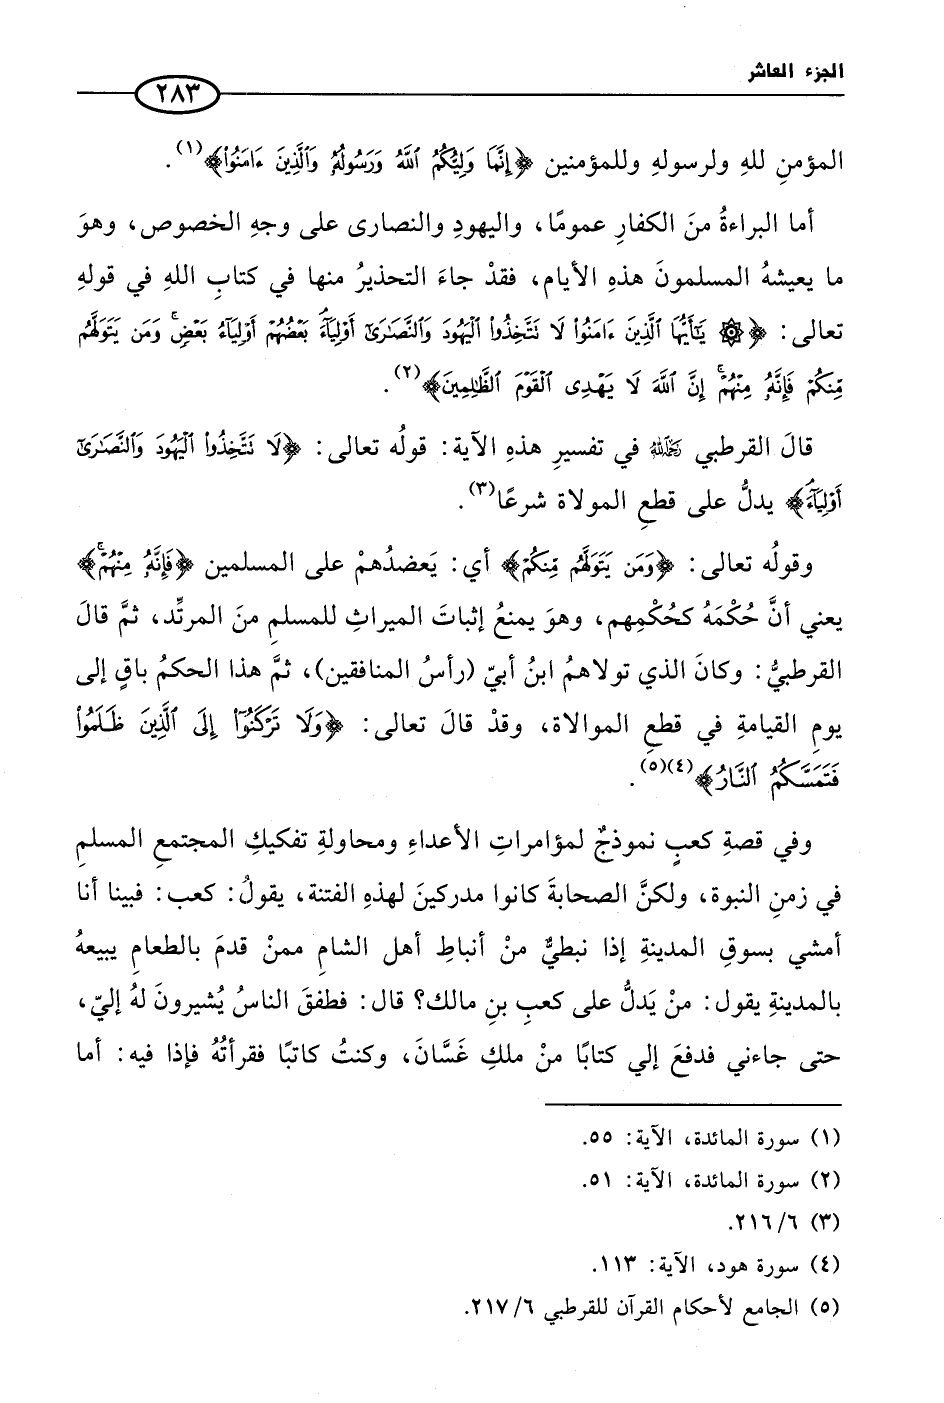 الجزء العاشر
٢٨٣
المؤمنِ للهِ ولرسولهِ وللمؤمنين ﴿إِنَّمَا وَلِيُّكُمُ ٱللَّهُ وَرَسُولُهُۥ وَٱلَّذِينَ ءَامَنُواْ﴾(١).
أما البراءةُ منَ الكفارِ عمومًا، واليهودِ والنصارى على وجهِ الخصوص، وهوَ
ما يعيشهُ المسلمونَ هذهِ الأيام، فقدْ جاءَ التحذيرُ منها في كتابِ اللهِ في قولهِ
تعالى: ﴿۞ يَٰٓأَيُّهَا ٱلَّذِينَ ءَامَنُواْ لَا تَتَّخِذُواْ ٱلْيَهُودَ وَٱلنَّصَٰرَىٰٓ أَوْلِيَآءَۘ بَعْضُهُمْ أَوْلِيَآءُ بَعْضٍۚ وَمَن يَتَوَلَّهُم
مِّنكُمْ فَإِنَّهُۥ مِنْهُمْۗ إِنَّ ٱللَّهَ لَا يَهْدِى ٱلْقَوْمَ ٱلظَّٰلِمِينَ﴾(٢).
قالَ القرطبي رحمه الله في تفسيرِ هذهِ الآية: قولُه تعالى: ﴿لَا تَتَّخِذُواْ ٱلْيَهُودَ وَٱلنَّصَٰرَىٰٓ
أَوْلِيَآءَۘ﴾ يدلُّ على قطعِ المولاة شرعًا(٣).
وقولُه تعالى: ﴿وَمَن يَتَوَلَّهُم مِّنكُمْ﴾ أي: يَعضدُهمْ على المسلمين ﴿فَإِنَّهُۥ مِنْهُمْۗ﴾
يعني أنَّ حُكْمَهُ كحُكْمِهم، وهوَ يمنعُ إثباتَ الميراثِ للمسلمِ منَ المرتِّد، ثمَّ قالَ
القرطبيُّ: وكانَ الذي تولاهمُ ابنُ أبيّ (رأسُ المنافقين)، ثمَّ هذا الحكمُ باقٍ إلى
يومِ القيامةِ في قطعِ الموالاة، وقدْ قالَ تعالى: ﴿وَلَا تَرْكَنُوٓاْ إِلَى ٱلَّذِينَ ظَلَمُواْ
فَتَمَسَّكُمُ ٱلنَّارُ﴾(٤)(٥).
وفي قصةِ كعبٍ نموذجٌ لمؤامراتِ الأعداءِ ومحاولةِ تفكيكِ المجتمعِ المسلمِ
في زمنِ النبوة، ولكنَّ الصحابةَ كانوا مدركينَ لهذهِ الفتنة، يقولُ: كعب: فبينا أنا
أمشي بسوقِ المدينةِ إذا نبطيٌّ منْ أنباطِ أهل الشامِ ممنْ قدمَ بالطعامِ يبيعهُ
بالمدينةِ يقول: منْ يَدلُّ على كعبِ بنِ مالك؟ قال: فطفقَ الناسُ يُشيرونَ لهُ إليّ،
حتى جاءني فدفعَ إلي كتابًا منْ ملكِ غَسَّانَ، وكنتُ كاتبًا فقرأتُهُ فإذا فيه: أما
(١) سورة المائدة، الآية: ٥٥.
(٢) سورة المائدة، الآية: ٥١.
(٣) ٦/ ٢١٦.
(٤) سورة هود، الآية: ١١٣.
(٥) الجامع لأحكام القرآن للقرطبي ٦/ ٢١٧.